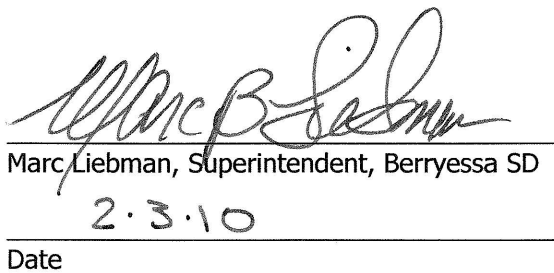 Marc B Liebman
Marc Liebman, Superintendent, Berryessa SD
2.3.10
Date